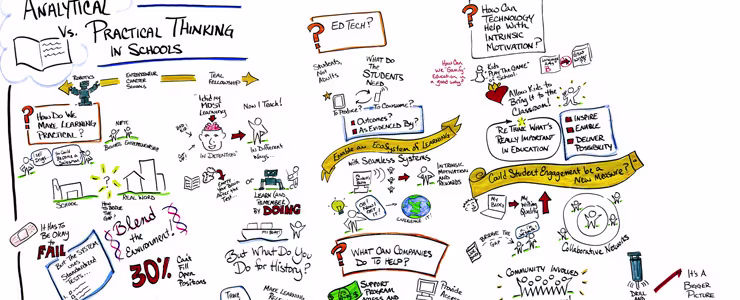 ANALYTICAL
VS. PRACTICAL THINKING
IN SCHOOLS
ROBOTICS
ENTREPRENEUR
CHARTER
SCHOOLS
TEAL
FELLOWSHIP
HOW DO WE
MAKE LEARNING
PRACTICAL?
NFTE
I DID MY MOST
LEARNING
IN DETENTION
NOW I TEACH!
IN DIFFERENT
WAYS...
SCHOOL
REAL WORD
HOW TO BRIDGE
THE GAP?
OR
LEARN (AND
REMEMBER)
BY DOING
IT HAS TO
BE OKAY
TO
FAIL
BUT THE SYSTEM
STANDARDIZED
TESTS...
BLEND
THE
ENVIRONMENT!
30%
CAN'T
FILL
OPEN
POSITIONS
BUT WHAT DO YOU
DO FOR HISTORY?
THINK
MAKE LEARNING
ED TECH?
STUDENTS,
NOT
ADULTS
WHAT DO
THE
STUDENTS
NEED
TO PRODUCE?
TO CONSUME?
OUTCOMES?
AS EVIDENCED BY?
ENABLE AN ECOSYSTEM OF LEARNING
WITH SEAMLESS SYSTEMS
INTRINSIC
MOTIVATION
AND
REWARDS
WHAT CAN COMPANIES
DO TO HELP?
SUPPORT
PROGRAM
PROVIDE
HOW CAN
TECHNOLOGY
HELP WITH
INTRINSIC
MOTIVATION?
HOW CAN
WE GAMIFY
EDUCATION IN
A GOOD WAY?
KIDS
"PLAY THE GAME"
OF SCHOOL
ALLOW KIDS TO
BRING IT TO THE
CLASSROOM!
RE THINK WHAT'S
REALLY IMPORTANT
IN EDUCATION
INSPIRE
ENABLE
DELIVER
POSSIBILITY
COULD STUDENT ENGAGEMENT BE A
NEW MEASURE?
MY
BLOG
MY
WRITING
QUALITY
BRIDGE THE
GAP
COLLABORATIVE NETWORKS
COMMUNITY INVOLVED
DRILL
AND
IT'S A
BIGGER
PICTURE